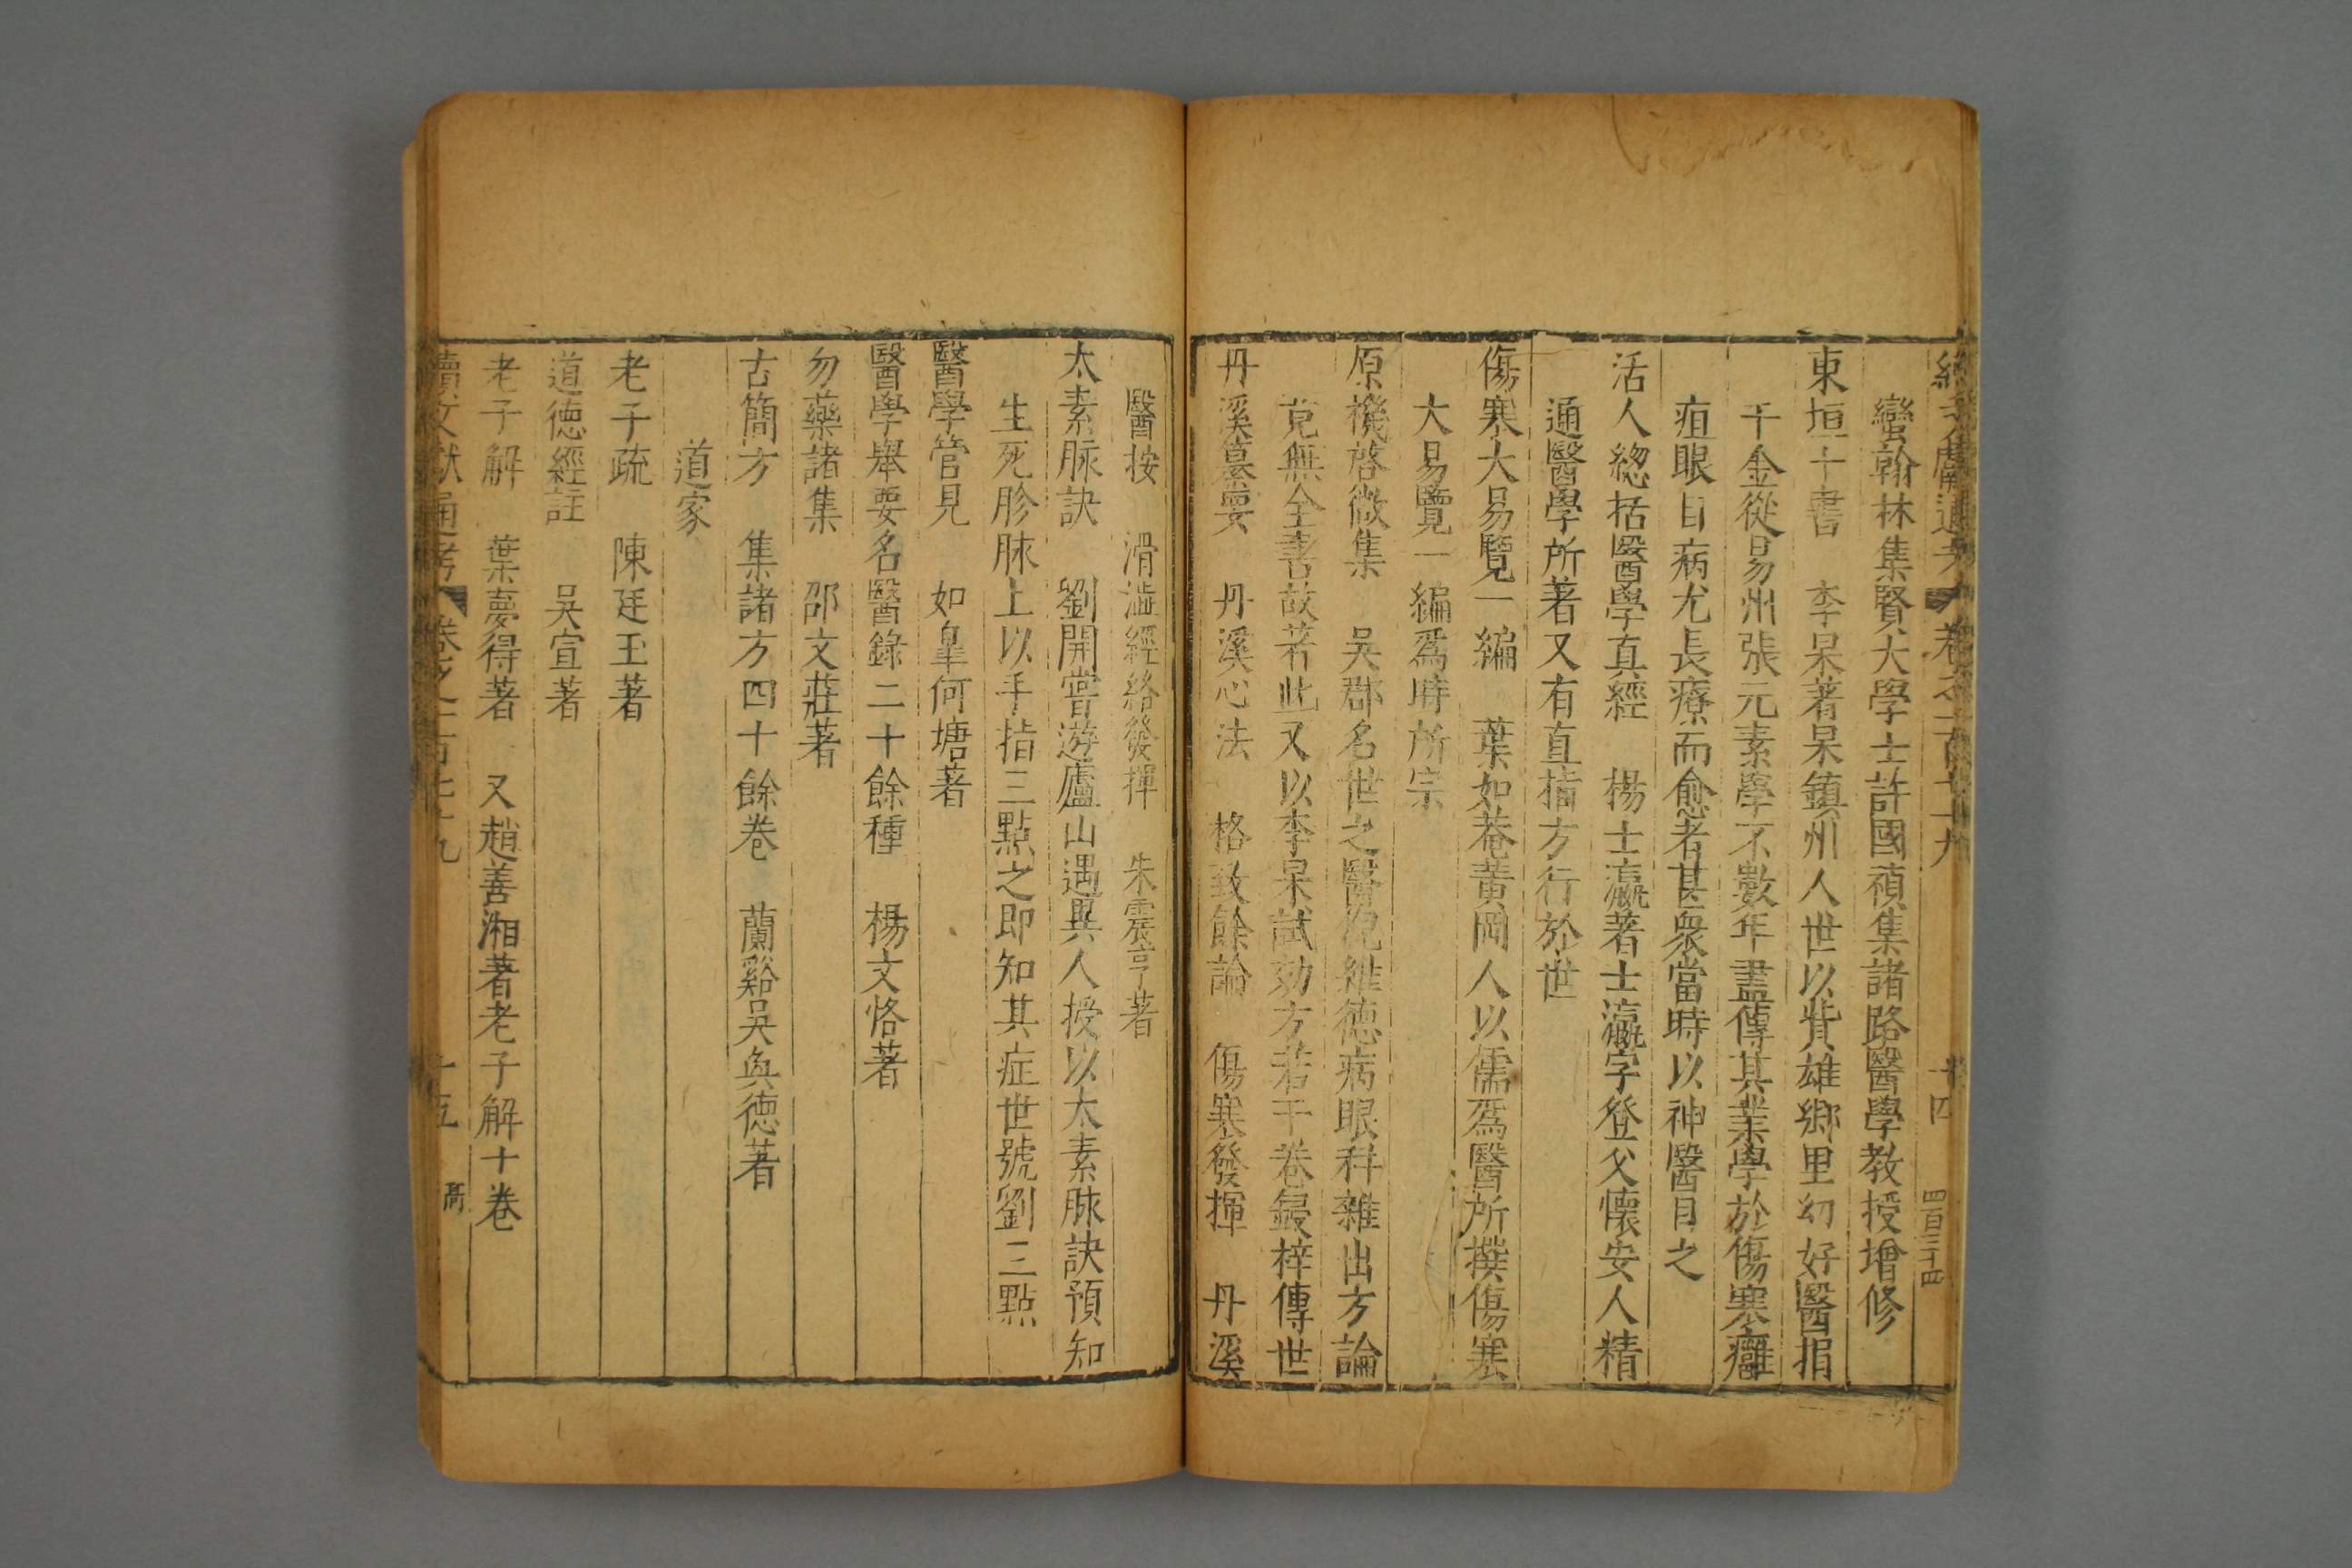 續文獻通考 卷之一百七十九 十四 四百三十四
蠻翰林集賢大學士許國禎集諸路醫學教授增修
東垣十書 李杲著杲鎮州人世以貲雄鄉里幼好醫捐
千金從易州張元素學不數年盡傳其業學於傷寒癰
疽眼目病尤長療而愈者甚衆當時以神醫目之
活人緫括醫學真經 楊士瀛著士瀛字登父懷安人精
通醫學所著又有直指方行於世
傷寒大易覽一編 葉如菴黃岡人以儒爲醫所撰傷寒
大易覽一編爲時所宗
原機啓微集 吳郡名世之醫倪維德病眼科雜出方論
竟無全書故著此又以李杲試効方若干卷鋟梓傳世
丹溪纂要 丹溪心法 格致餘論 傷寒發揮 丹溪
醫按 滑澁經絡發揮 朱震亨著
太素脉訣 劉開嘗遊廬山遇異人授以太素脉訣預知
生死胗脉上以手指三點之即知其症世號劉三點
醫學管見 如臯何塘著
醫學舉要名醫錄二十餘種 楊文恪著
勿藥諸集 邵文莊著
古簡方 集諸方四十餘卷 蘭谿吳與德著
道家
老子疏 陳廷玉著
道德經註 吳宣著
老子解 葉夢得著 又趙善湘著老子解十卷
續文獻通考 卷之一百七十九 十五 髙